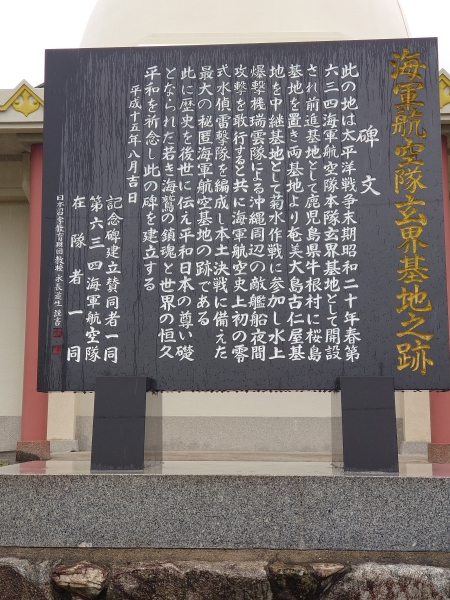 海軍航空隊玄界基地之跡
碑文
此の地は太平洋戦争末期昭和二十年春第
六三四海軍航空隊本隊玄界基地として開設
され前進基地として鹿児島県牛根村に桜島
基地を置き両基地より奄美大島古仁屋基
地を中継基地として菊水作戦に参加し水上
爆撃機瑞雲隊による沖縄周辺の敵艦船夜間
攻撃を敢行すると共に海軍航空史上初の零
式水偵雷撃隊を編成し本土決戦に備えた
最大の秘匿海軍航空基地の跡である
此に歴史を後世に伝え平和日本の尊い礎
となられた若き海鷲の鎮魂と世界の恒久
平和を祈念し此の碑を建立する
平成十五年八月吉日
記念碑建立賛同者一同
第六三四海軍航空隊
在隊者一同
日本習字教育財団教授